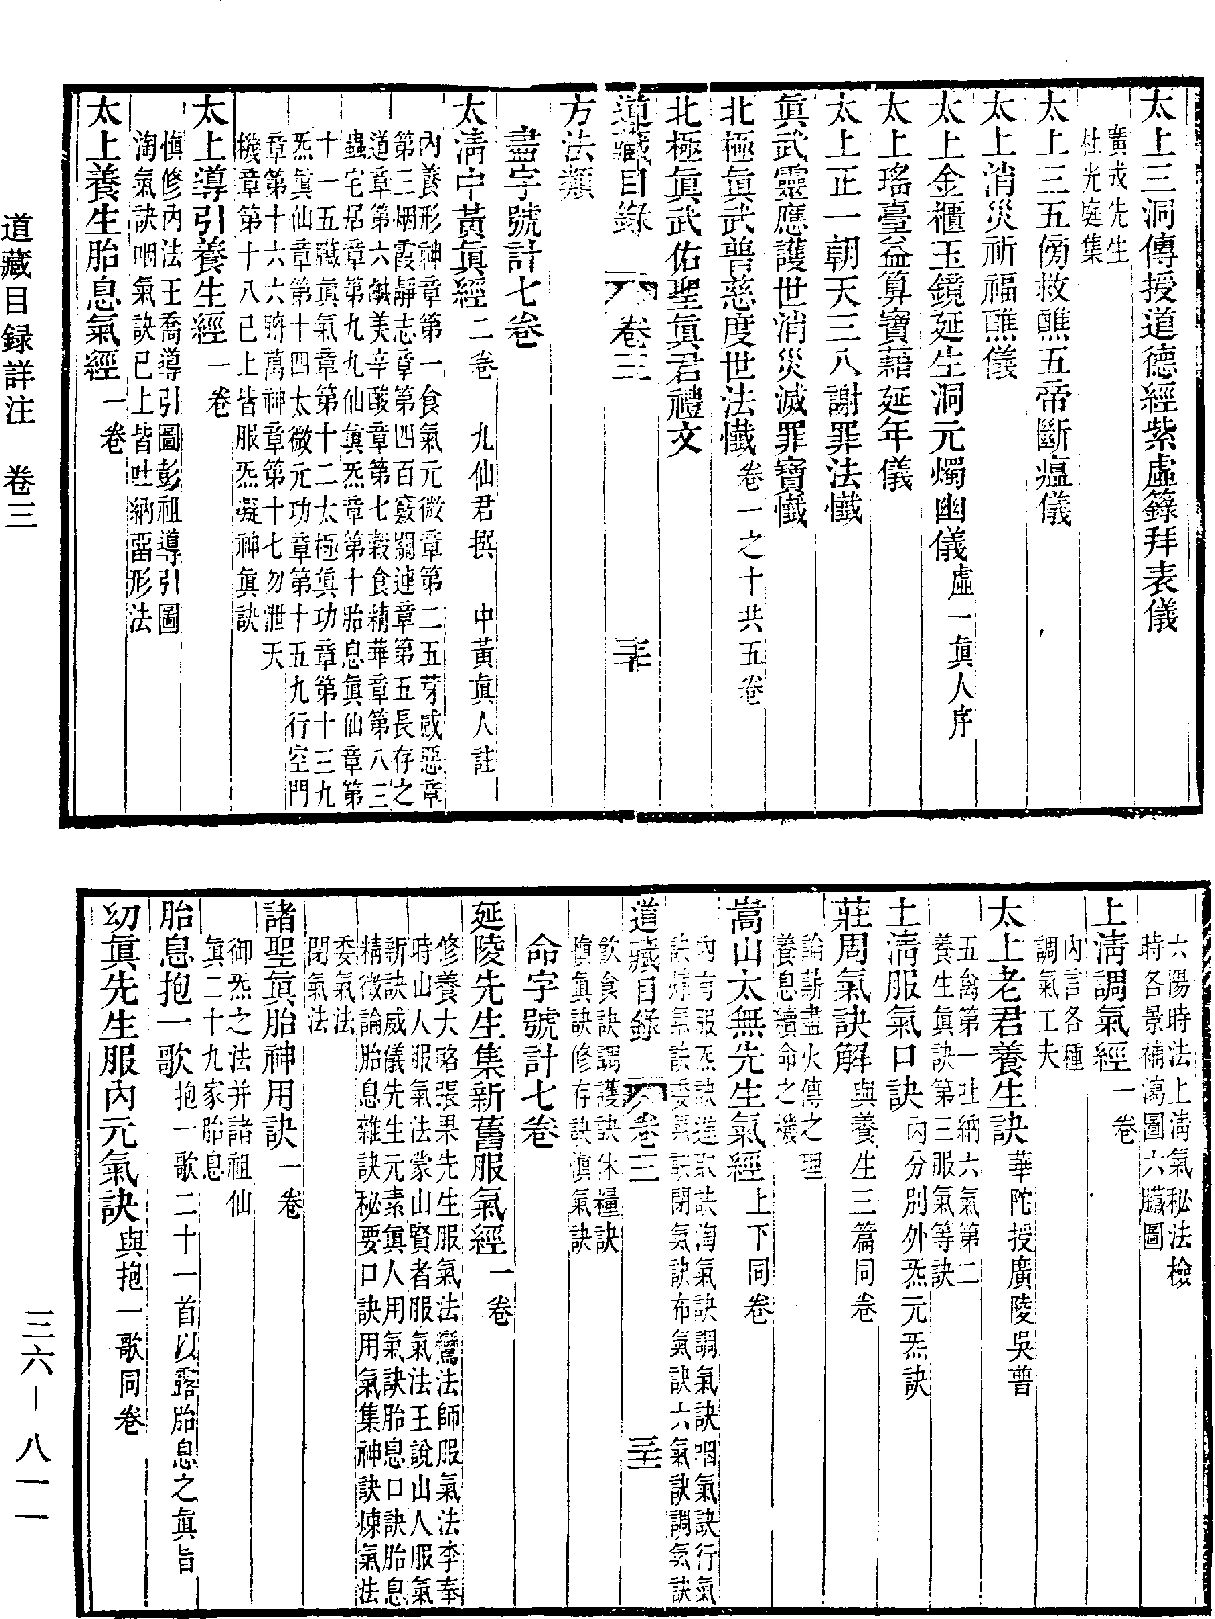 太上三洞傳授道德經紫虛籙拜表儀
廣成先生
杜光庭集
太上三五傍救醮五帝斷瘟儀
太上消災祈福醮儀
太上金櫃玉鏡延生洞元燭幽儀 虛一眞人序
太上瑤臺益算寶藉延年儀
太上正一朝天三八謝罪法懺
眞武靈應護世消災滅罪寶懺
北極眞武普慈度世法懺 卷一之十共五卷
北極眞武佑聖眞君禮文
道藏目錄 卷三 三十
方法類
盡字號計七卷
太淸中黃眞經 二卷 九仙君撰 中黃眞人註
內養形神章第一食氣元微章第二五芽咸惡章
第三烟霞靜志章第四百竅關連章第五長存之
道章第六鹹美辛酸章第七穀食精華章第八三
蟲宅居章第九九仙眞炁章第十胎息眞仙章第
十一五臟眞氣章第十二太極眞功章第十三九
炁眞仙章第十四太微元功章第十五九行空門
章第十六六腑萬神章第十七勿泄天
機章第十八已上皆服炁凝神眞訣
太上導引養生經 一卷
愼修內法王喬導引圖彭祖導引圖
淘氣訣咽氣訣已上皆吐納畱形法
太上養生胎息氣經 一卷
道藏目録詳注 卷三
六陽時法上淸氣秘法檢
時各景補瀉圖六臟圖
上淸調氣經 一卷
內言各種
調氣工夫
太上老君養生訣 華陀授廣陵吳普
五禽第一吐納六氣第二
養生眞訣第三服氣等訣
上淸服氣口訣 內分別外炁元炁訣
莊周氣訣解 與養生三篇同卷
論薪盡火傳之理
養息續命之機
嵩山太無先生氣經 上下同卷
內有服炁訣進取訣淘氣訣調氣訣咽氣訣行氣
訣煉氣訣委氣訣閉氣訣布氣訣六氣訣調氣訣
道藏目錄 卷三 三十一
飲食訣調護訣休糧訣
愼眞訣修存訣愼氣訣
命字號計七卷
延陵先生集新舊服氣經 一卷
修養大略張果先生服氣法鸞法師服氣法李奉
時山人服氣法蒙山賢者服氣法王說山人服氣
新訣威儀先生元素眞人用氣訣胎息口訣胎息
精微論胎息雜訣秘要口訣用氣集神訣煉氣法
委氣法
閉氣法
諸聖眞胎神用訣 一卷
御炁之法并諸祖仙
眞二十九家胎息
胎息抱一歌 抱一歌二十一首以露胎息之眞旨
幻眞先生服內元氣訣 與抱一歌同卷
三六－八一一